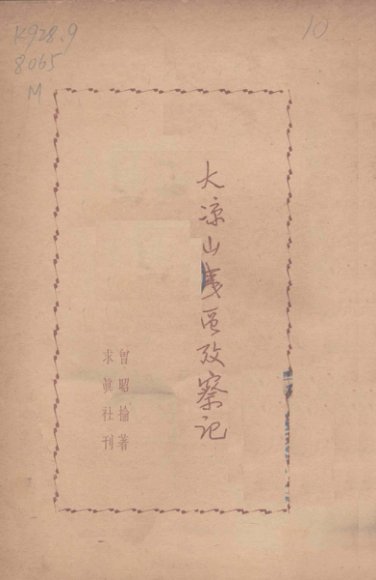 K928.9
8065
M
10
大凉山夷区考察记
曾昭掄著
求真社刊